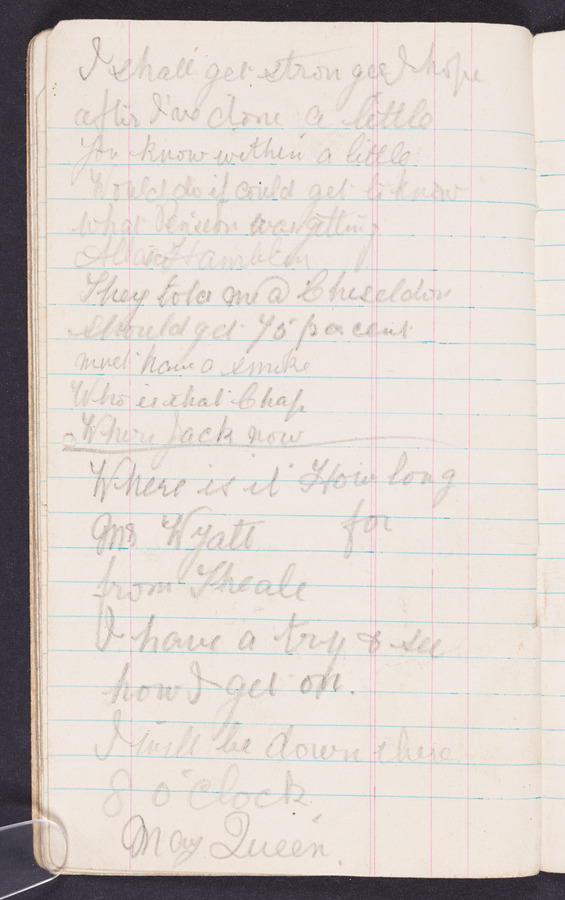 I shall get stronger I hope
after I've done a little
You know within a little
Would do if could get to know
what Denison was getting
Hamblin
They told me @ Cheseldon
should get 75 per cent
must have a smoke
Who is that Chap
Where Jack now
Where is it How long
Mr Wyatt for
from Theale
I have a try & see
how I get on.
I will be down there
8 o'clock
May Queen.